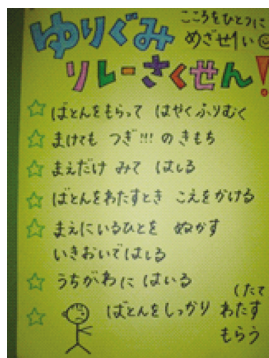 ゆりぐみ
こころをひとつに
めざせ1い
リレーさくせん!
ばとんをもらって はやくふりむく
まけても つぎ!!! のきもち
まえだけ みて はしる
ばとんをわたすとき こえをかける
まえにいるひとを ぬかす
いきおいではしる
うちがわに はいる
(たて
ばとんをしっかり わたす
もらう